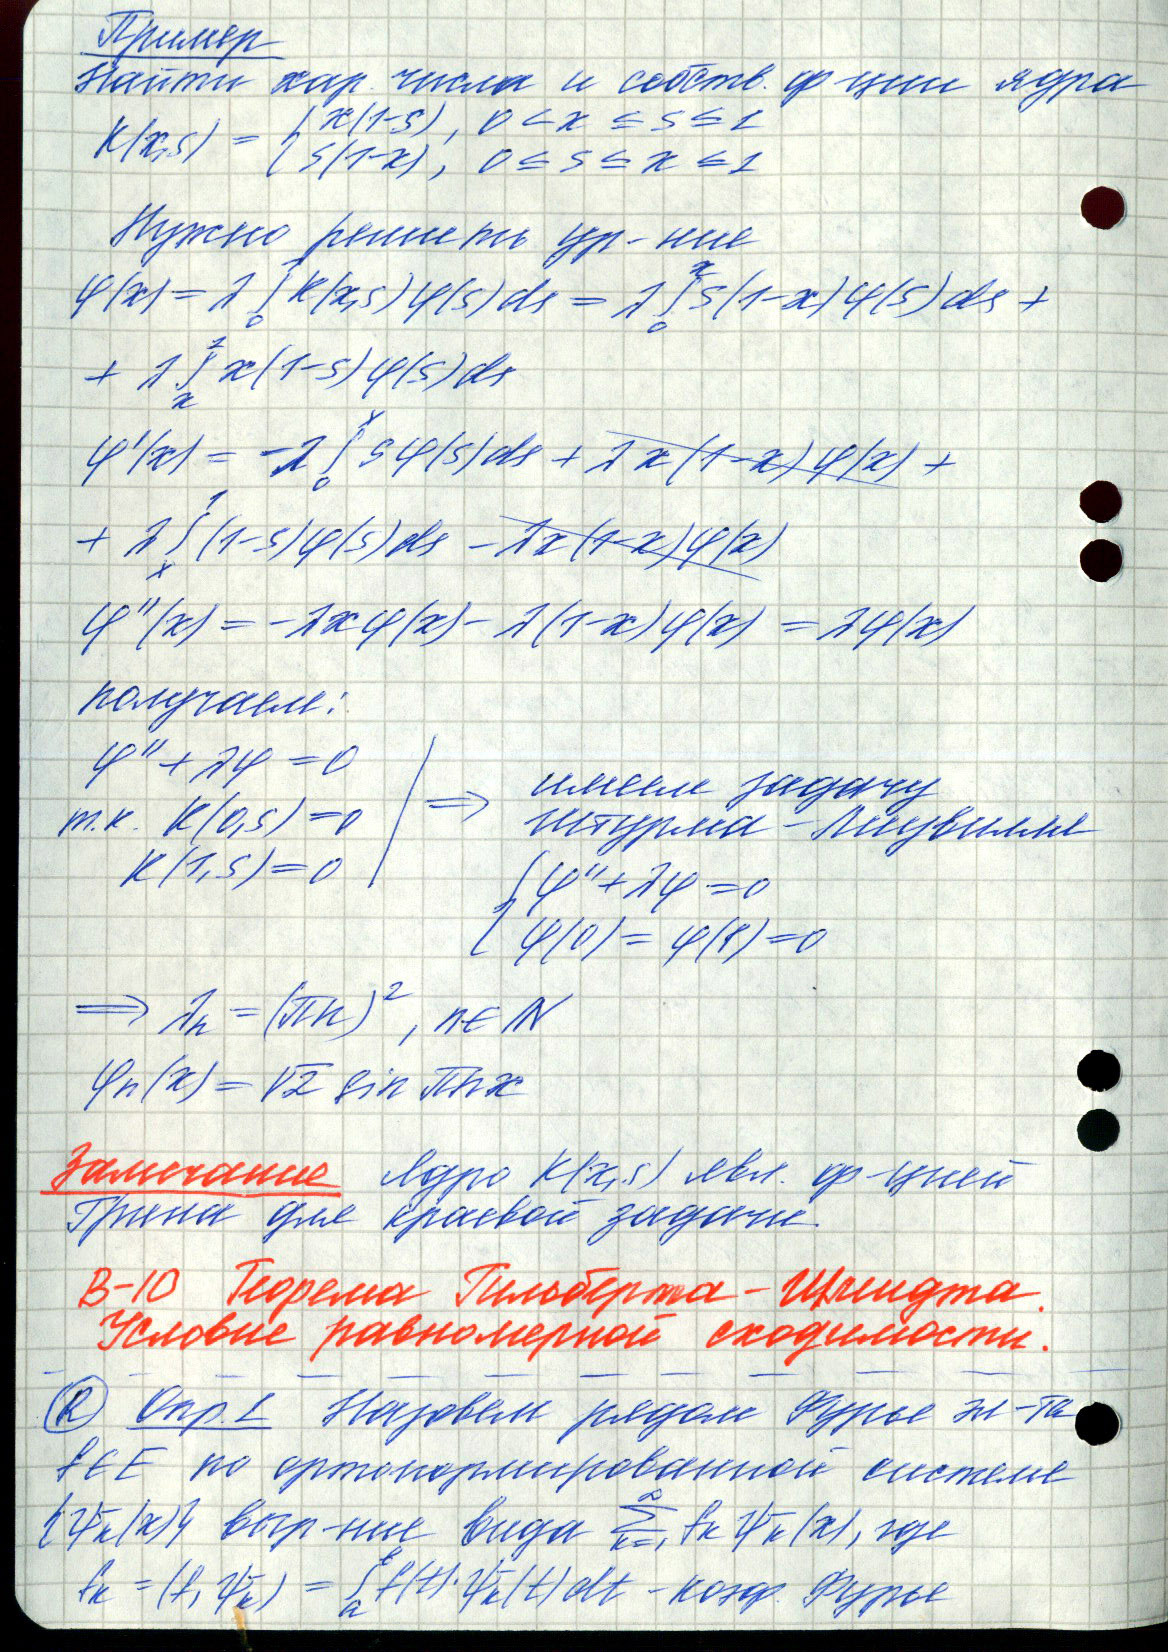 Пример
Найти хар. числа и собств. ф-ции ядра
K(x,s) = { x(1-s), 0 ≤ x ≤ s ≤ 1
s(1-x), 0 ≤ s ≤ x ≤ 1
Нужно решить ур-ние
φ(x) = λ ∫₀¹ K(x,s) φ(s) ds = λ ∫₀ˣ s(1-x) φ(s) ds +
+ λ ∫ₓ¹ x(1-s) φ(s) ds
φ'(x) = -λ ∫₀ˣ s φ(s) ds + λx(1-x)φ(x) +
+ λ ∫ₓ¹ (1-s) φ(s) ds - λx(1-x)φ(x)
φ''(x) = -λxφ(x) - λ(1-x)φ(x) = λφ(x)
получаем:
φ'' + λφ = 0
т.к. K(0,s) = 0
K(1,s) = 0
⇒ имеем задачу
Штурма-Лиувилля
{ φ'' + λφ = 0
φ(0) = φ(1) = 0
⇒ λₙ = (πn)², n ∈ ℕ
φₙ(x) = √2 sin πnx
Замечание Ядро K(x,s) явл. ф-цией
Грина для краевой задачи.
В-10 Теорема Гильберта-Шмидта.
Условие равномерной сходимости.
Ⓡ Опр.1 Назовем рядом Фурье эл-та
f ∈ E по ортонормированной системе
{ψₖ(x)} выр-ние вида ∑ₖ₌₁^∞ fₖ ψₖ(x), где
fₖ = (f, ψₖ) = ∫ₐᵇ f(t)·ψₖ(t) dt - коэф. Фурье